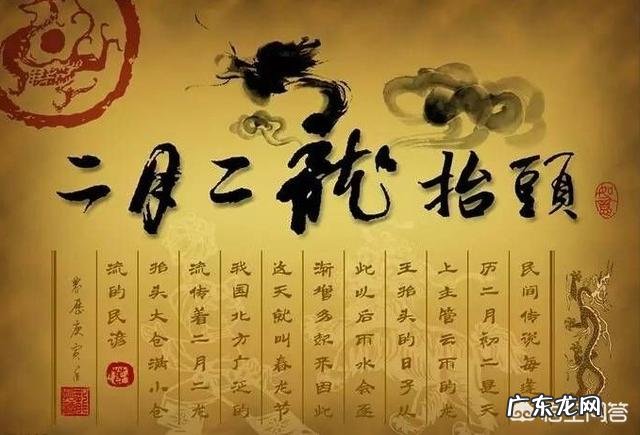 二月二龍抬頭
如意
民间传说每逢
历二月初二是天
上主管云雨的龙
王抬头的日子从
此以后雨水会逐
渐增多起来因此
这天就叫春龙节
我国北方广泛的
流传着二月二龙
抬头大仓满小仓
流的民谚
农历庚寅年
悟空问答
广东龙网